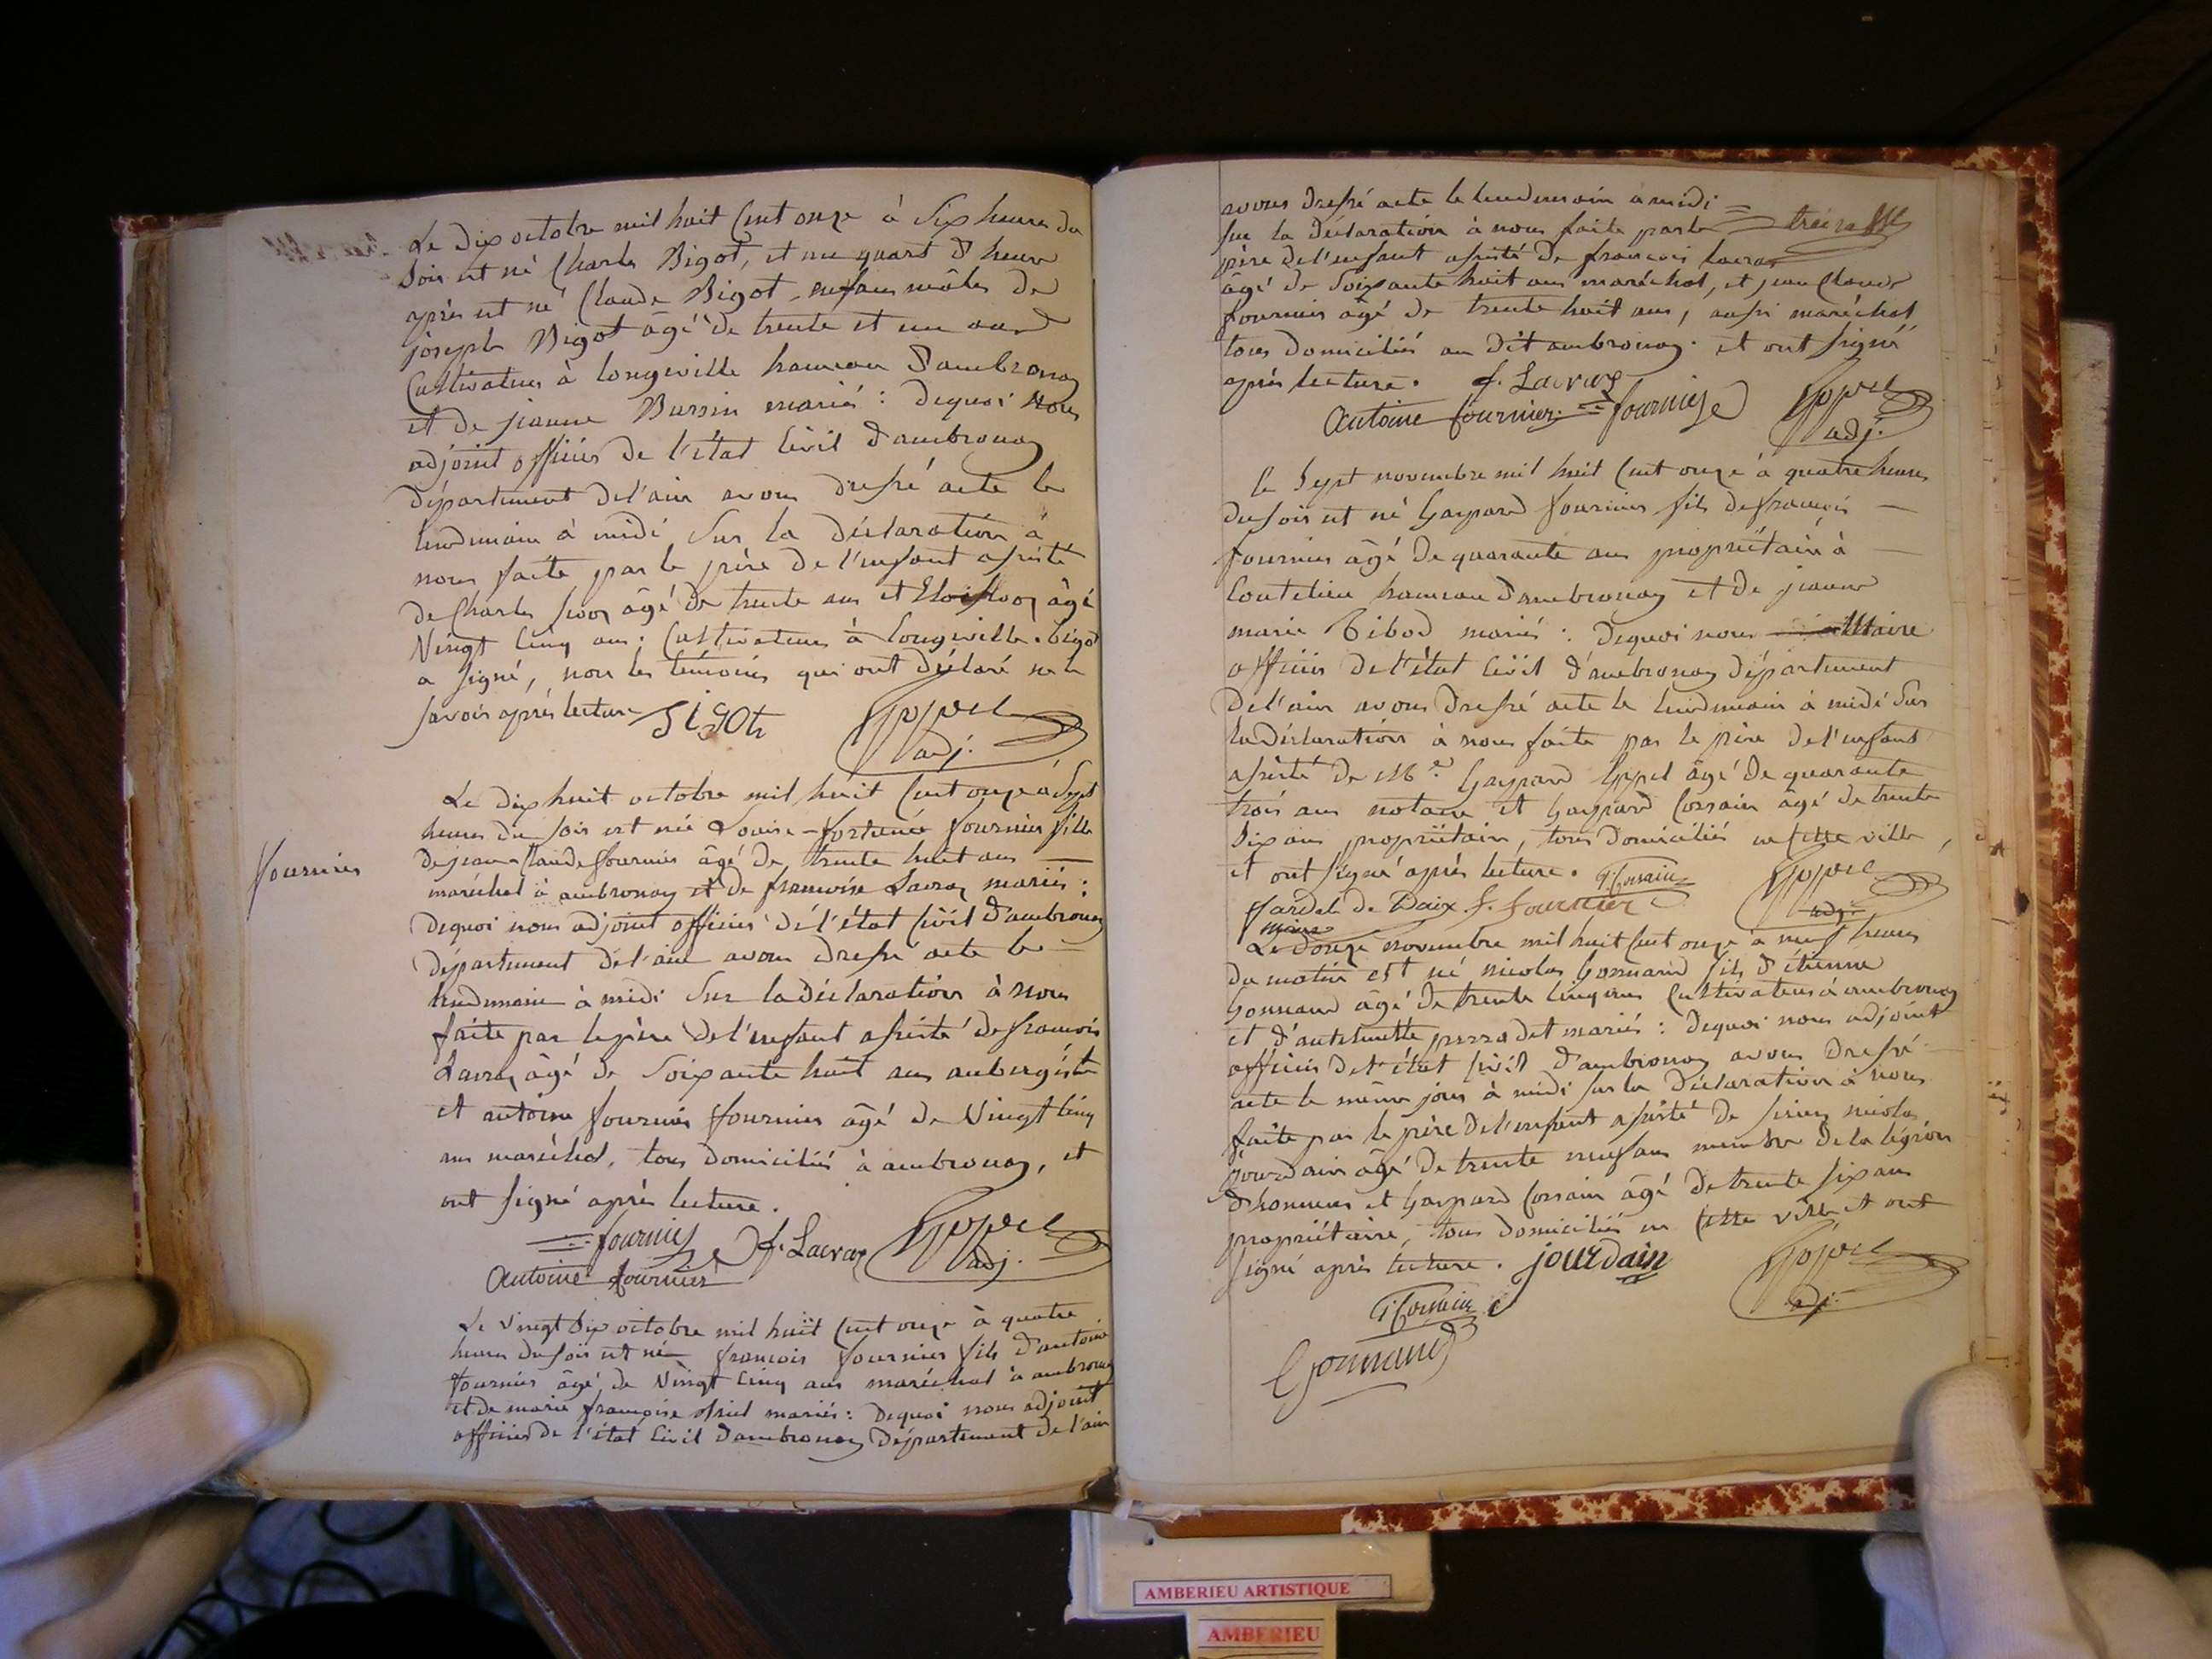 Le dix octobre mil huit cent onze à six heures du
soir est né Charles Bigot, et un quart d'heure
après est né Claude Bigot, enfans mâles de
joseph Bigot âgé de trente et un ans
Cultivateur à longeville hameau d'ambronay
et de jeanne Bussin mariés : dequoi nous
adjoint officier de l'état civil d'ambronay
département de l'ain avons dressé acte le
lendemain à midi sur la déclaration à
nous faite par le père de l'enfant assisté
de Charles âgé de trente ans et âgé
Vingt cinq ans, Cultivateurs à longeville. bigot
a signé, non les témoins qui ont déclaré ne le
savoir après lecture bigot
adj.
Le dix huit octobre mil huit cent onze à sept
heures du soir est née Louise-fortunée fournier fille
de jean-Claude fournier âgé de trente huit ans
fournier
maréchal à ambronay et de françoise Lacroz mariés :
dequoi nous adjoint officier de l'état civil d'ambronay
département de l'ain avons dressé acte le
lendemain à midi sur la déclaration à nous
faite par le père de l'enfant assisté de françois
Lacroz âgé de soixante huit ans aubergiste
et antoine fournier fournier âgé de Vingt cinq
ans maréchal, tous domiciliés à ambronay, et
ont signé après lecture.
fournier f. Lacroz
adj.
antoine fournier
Le Vingt six octobre mil huit cent onze à quatre
heures du soir est né françois fournier fils d'antoine
fournier âgé de Vingt cinq ans maréchal à ambronay
et de marie françoise mariés : dequoi nous adjoint
officier de l'état civil d'ambronay département de l'ain
avons dressé acte le lendemain à midi
sur la déclaration à nous faite par le
père de l'enfant assisté de françois lacroz
âgé de soixante huit ans maréchal, et jean Claude
fournier âgé de trente huit ans, aussi maréchal
tous domiciliés au dit ambronay. et ont signé
après lecture. f. Lacroz
antoine fournier fournier
adj.
le sept novembre mil huit cent onze à quatre heures
du soir est né Gaspard fournier fils de françois
fournier âgé de quarante ans propriétaire à
Coutelieu hameau d'ambronay et de jeanne
marie Tibod mariés : dequoi nous Maire
officier de l'état civil d'ambronay département
de l'ain avons dressé acte le lendemain à midi sur
la déclaration à nous faite par le père de l'enfant
assisté de Me. Gaspard âgé de quarante
trois ans notaire et Gaspard Corsain âgé de trente
six ans propriétaire, tous domiciliés en cette ville
et ont signé après lecture. G. Corsain
f. fournier
adj.
maire
Le douze novembre mil huit cent onze à neuf heures
du matin est né nicolas Gonnand fils d'étienne
Gonnand âgé de trente cinq ans Cultivateur à ambronay
et d'anthelmette mariés : dequoi nous adjoint
officier de l'état civil d'ambronay avons dressé
acte le même jour à midi sur la déclaration à nous
faite par le père de l'enfant assisté de nicolas
jourdain âgé de trente neuf ans membre de la légion
d'honneur et Gaspard Corsain âgé de trente six ans
propriétaire, tous domiciliés en cette ville et ont
signé après lecture. jourdain
adj.
G. Corsain
Gonnand
AMBERIEU ARTISTIQUE
AMBERIEU